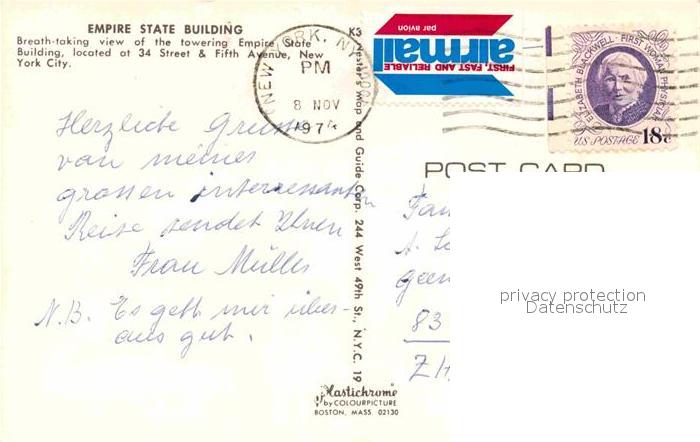 EMPIRE STATE BUILDING
Breath-taking view of the towering Empire State
Building, located at 34 Street & Fifth Avenue, New
York City.
Herzliche Grüsse
von meiner
grossen interessanten
Reise sendet Ihnen
Frau Müller
N.B. Es geht mir über-
aus gut.
K3
Map and Guide Corp. 244 West 49th St., N.Y.C. 19
Plastichrome
by COLOURPICTURE
BOSTON, MASS. 02130
NEW YORK, NY
PM
8 NOV
1974
par avion
airmail
FIRST, FAST AND RELIABLE
ELIZABETH BLACKWELL · FIRST WOMAN PHYSICIAN
US POSTAGE 18c
POST CARD
Fam
A. Se
83
privacy protection
Datenschutz